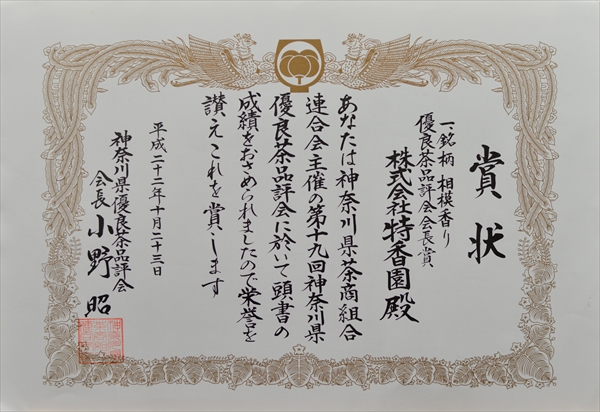 賞状
一、銘柄 相模香り
優良茶品評会会長賞
株式会社特香園殿
あなたは神奈川県茶商組合
連合会主催の第十九回神奈川県
優良茶品評会に於いて頭書の
成績をおさめられましたので栄誉を
讃えこれを賞します
平成二十二年十月二十三日
神奈川県優良茶品評会
会長 小野 昭